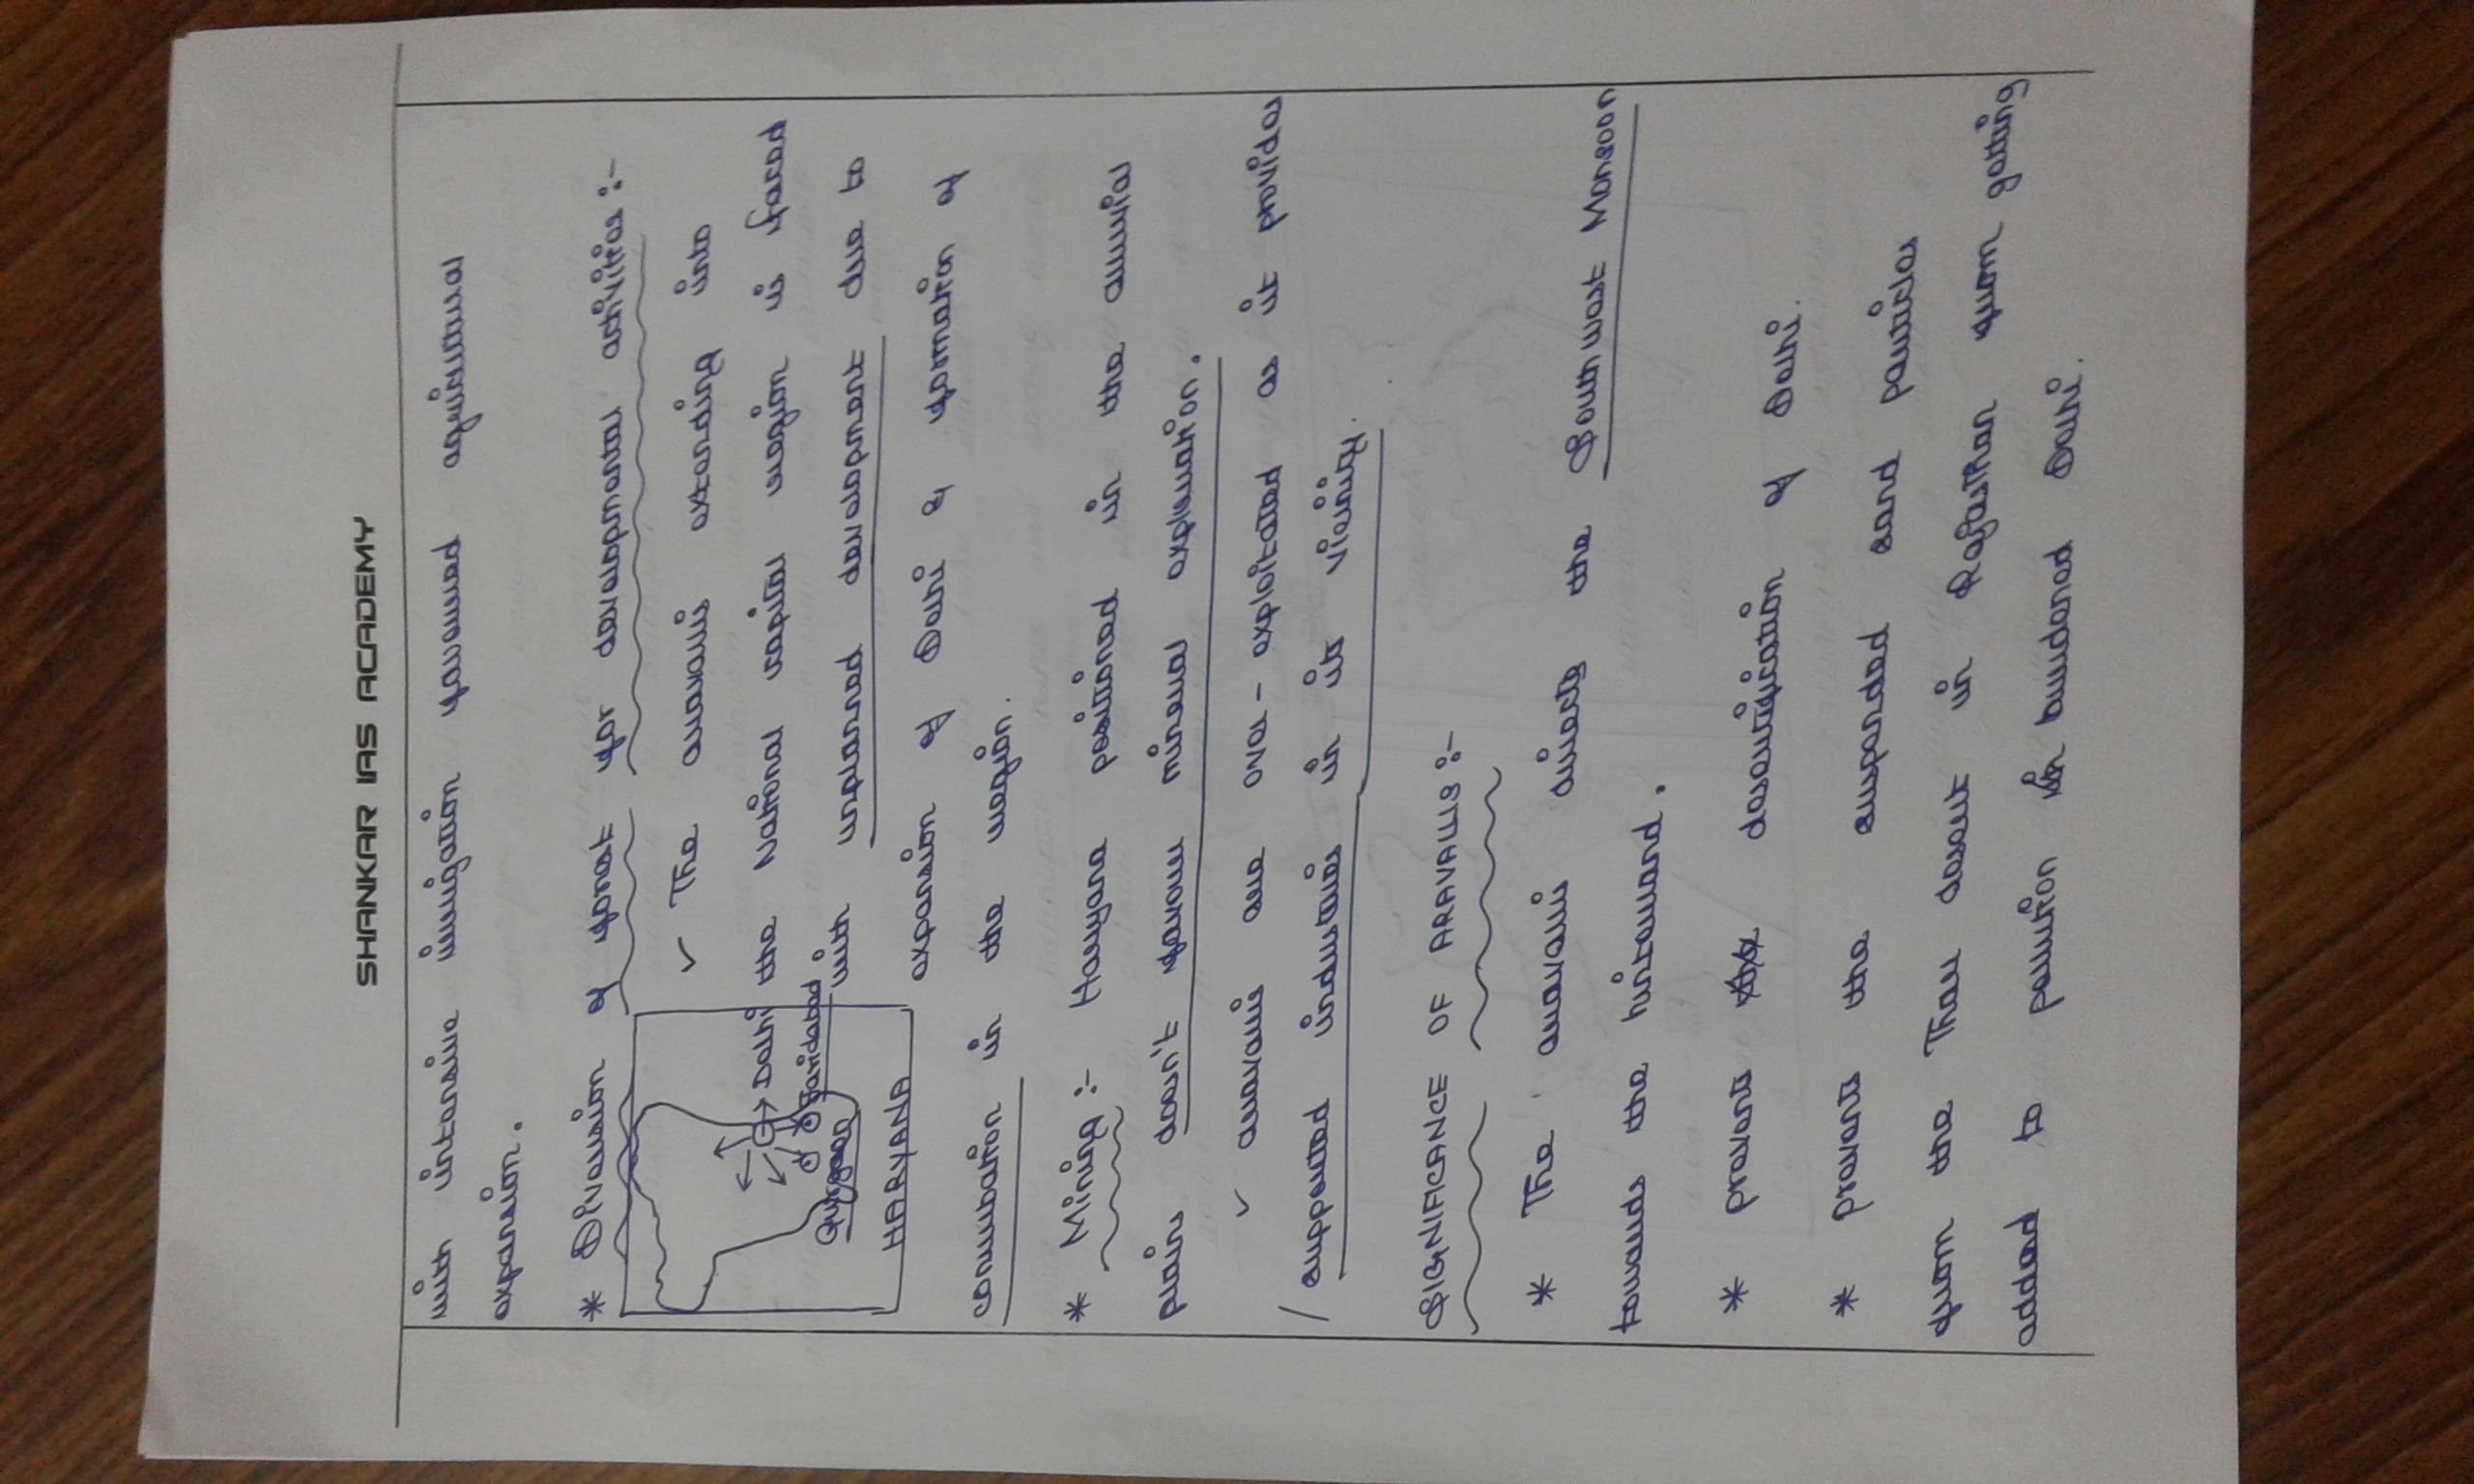 SHANKAR IAS ACADEMY
with intensive irrigation favoured agricultural
expansion.
* Diversion of forest for developmental activities :-
✓ The aravalis extending into
the National capital region is faced
with unplanned development due to
expansion of Delhi & formation of
conurbation in the region.
→ Delhi
Faridabad.
Gurgaon
HARYANA
* Mining :- Haryana positioned in the alluvial
plains doesn't favour mineral exploration.
✓ aravalis are over-exploitated as it provides
/ supported industries in its vicinity.
SIGNIFICANCE OF ARAVALLIS :-
* The aravalis directs the South west Monsoon
towards the hinterland.
* prevents desertification of Delhi.
* prevents the suspended sand particles
from the Thar desert in Rajasthan from getting
added to pollution in burdened Delhi.